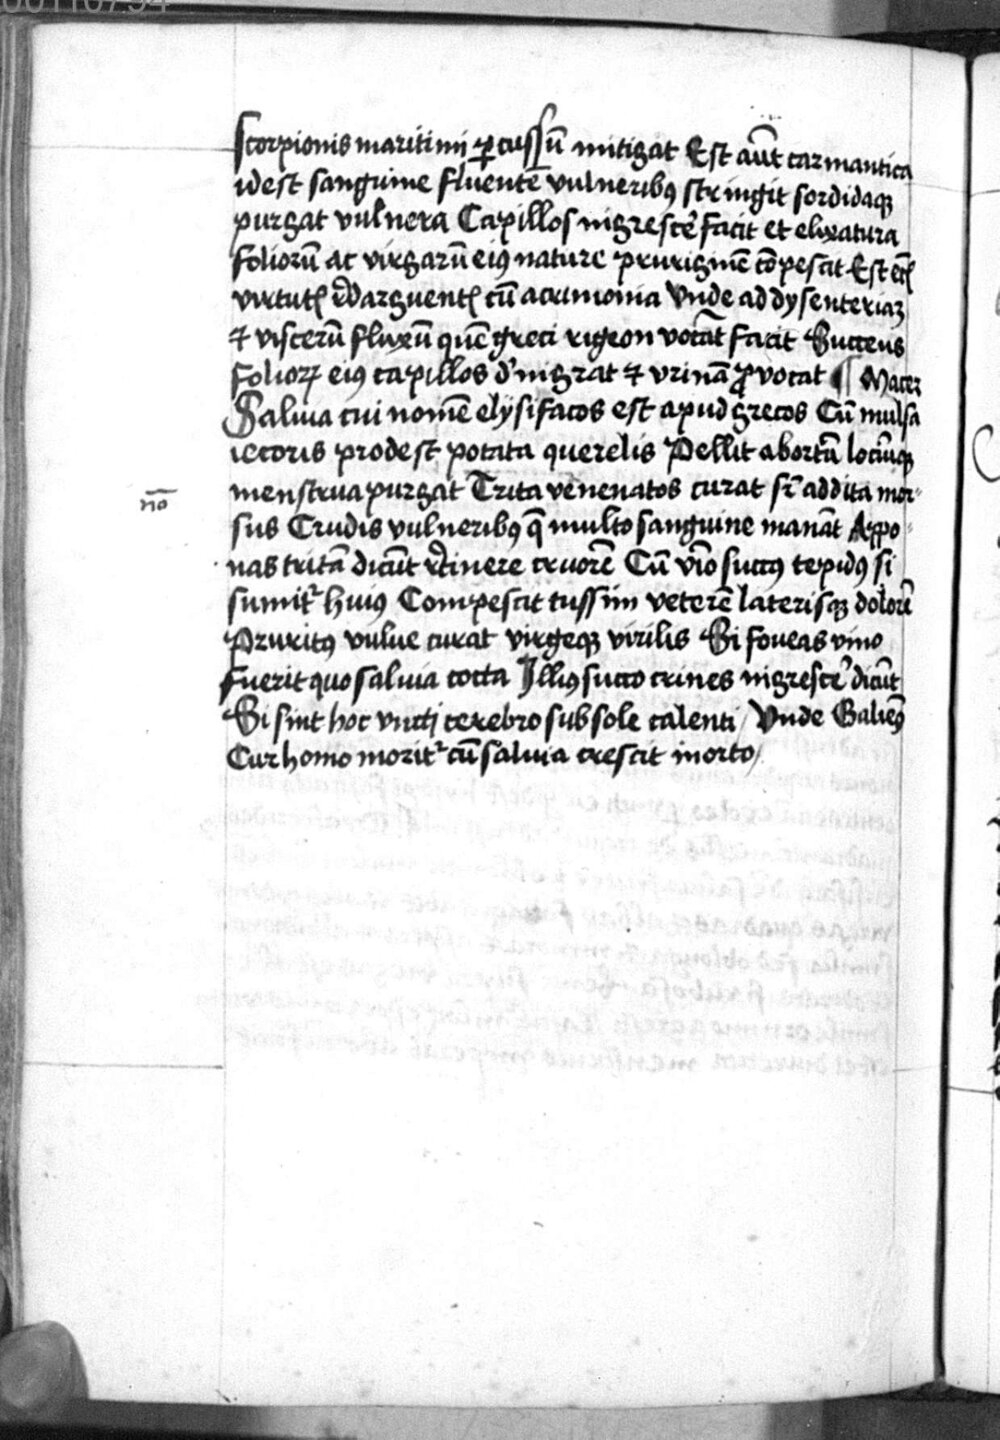 scorpionis maritimi ꝑcussū mitigat Est aūt carmantica
idest sanguine fluentē vulneribꝰ stringit sordidaqꝫ
purgat vulnera Capillos nigrescē facit et elixatura
foliorū ac virgarū eiꝰ nature pruriginē cōpescit Est
virtutꝭ cū acrimonia Vnde ad dysenteriaꝫ
⁊ viscerū fluxū quē greci rigeon vocāt facit Succus
folioꝝ eiꝰ capillos d'nigrat ⁊ vrinā ꝓvocat ¶ Macer
Salvia cui nomē elysifacos est apud grecos Cū mulsa
iecoris prodest potata querelis Pellit abortū
menstrua purgat Trita venenatos curat si addita mor-
no
sus Crudis vulneribꝰ q̄ multo sanguine manāt Appo-
nas tritā dicūt retinere cruorē Cū vīo succꝰ tepidꝰ si
sumitr̄ huiꝰ Compescit tussim veterē laterisqꝫ dolorē
Pruritꝰ vulue curat virgeqꝫ virilis Si foveas vino
fuerit quo salvia cocta Illiꝰ succo crines nigrescē dicūt
Si sint hoc vncti cerebro sub sole calenti / Vnde Galienꝰ
Cur homo moritr̄ cū salvia crescit in orto /